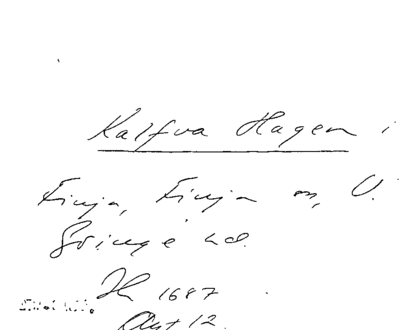 Kalfva Hagen i
Finja, Finja sn, V.
Göinge hd.
Jb 1687
Akt 12.